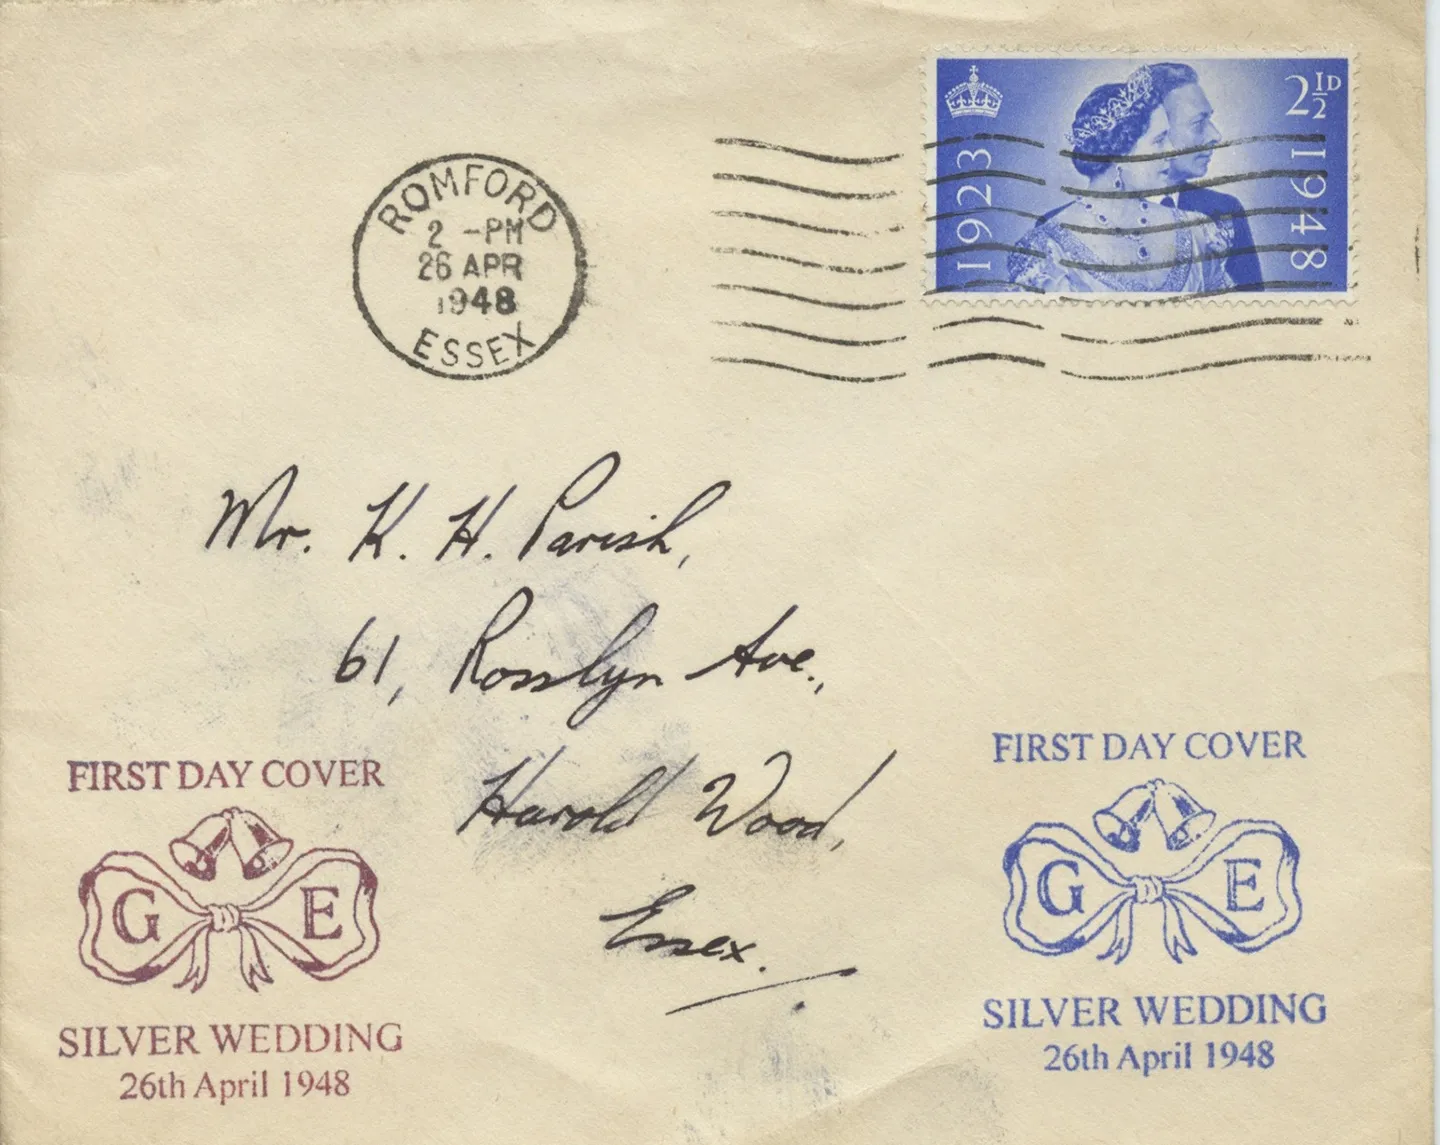 1923
2½D
1948
ROMFORD
2 -PM
26 APR
1948
ESSEX
Mr. K. H. Parish,
61, Rosslyn Ave.,
Harold Wood,
Essex.
FIRST DAY COVER
G E
SILVER WEDDING
26th April 1948
FIRST DAY COVER
G E
SILVER WEDDING
26th April 1948